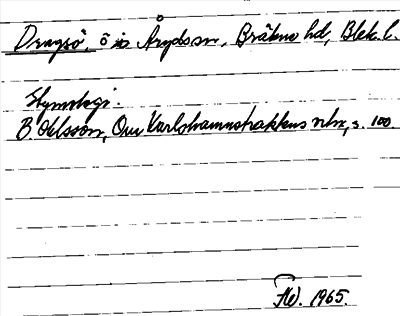 Dragsö, ö i Åryds sn, Bräkne hd, Blek. l.
Etymologi.
B. Olsson, Om Karlshamnstraktens nhr, s. 100
1965.